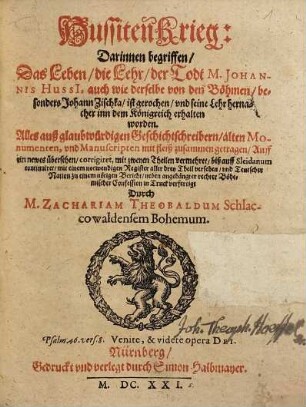 Hussiten Krieg:
Darinnen begriffen/
Das Leben/ die Lehr/ der Todt M. JOHAN-
NIS HUSSI, auch wie derselbe von den Böhmen/ be-
sonders Johann Zischka/ ist gerochen/ vnd seine Lehr herna-
cher inn dem Königreich erhalten
worden.
Alles auß glaubwürdigen Geschichtschreibern/ alten Mo-
numenten, vnd Manuscripten mit fleiß zusammen getragen/ Auff
ein newes übersehen/ corrigiret, mit zweyen Theilen vermehret/ biß auff Sleidanum
continuiret/ mit einem notwendigen Register aller drey Theil versehen/ vnd Teutscher
Nation zu einem nützlichen Bericht/ neben angehängter rechter Böh-
mischer Confession in Truck verfertigt
Durch
M. ZACHARIAM THEOBALDUM Schlac-
cowaldensem Bohemum.
Psalm. 46. vers. 8. Venite, & videte opera DEI.
Joh. Theoph.
Nürnberg/
Gedruckt vnd verlegt durch Simon Halbmayer.
M. DC. XXI.